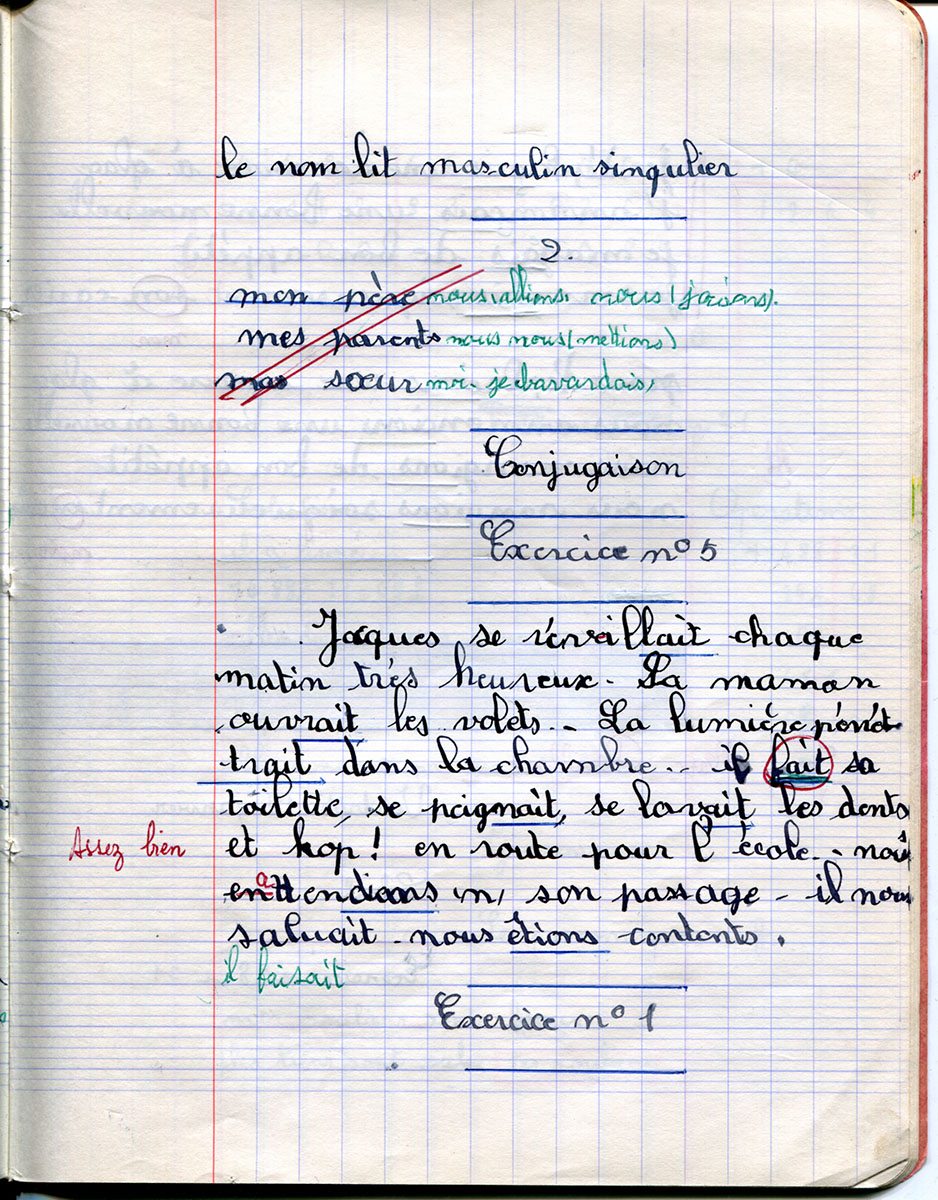 le nom lit masculin singulier
2.
mon père nous allions. nous (jouions).
mes parents nous nous (mettions)
mas sœur moi. je bavardais,
Conjugaison
Exercice n° 5
Jacques se réveillait chaque
matin trés heureux. La maman
ouvrait les volets. La lumiére pénét
trait dans la chambre. il fait sa
toilette, se peignait, se lavait les dents
et hop! en route pour l'école. nous
Assez bien
attendions son passage - il nous
saluait. nous étions contents.
il faisait
Exercice n° 1